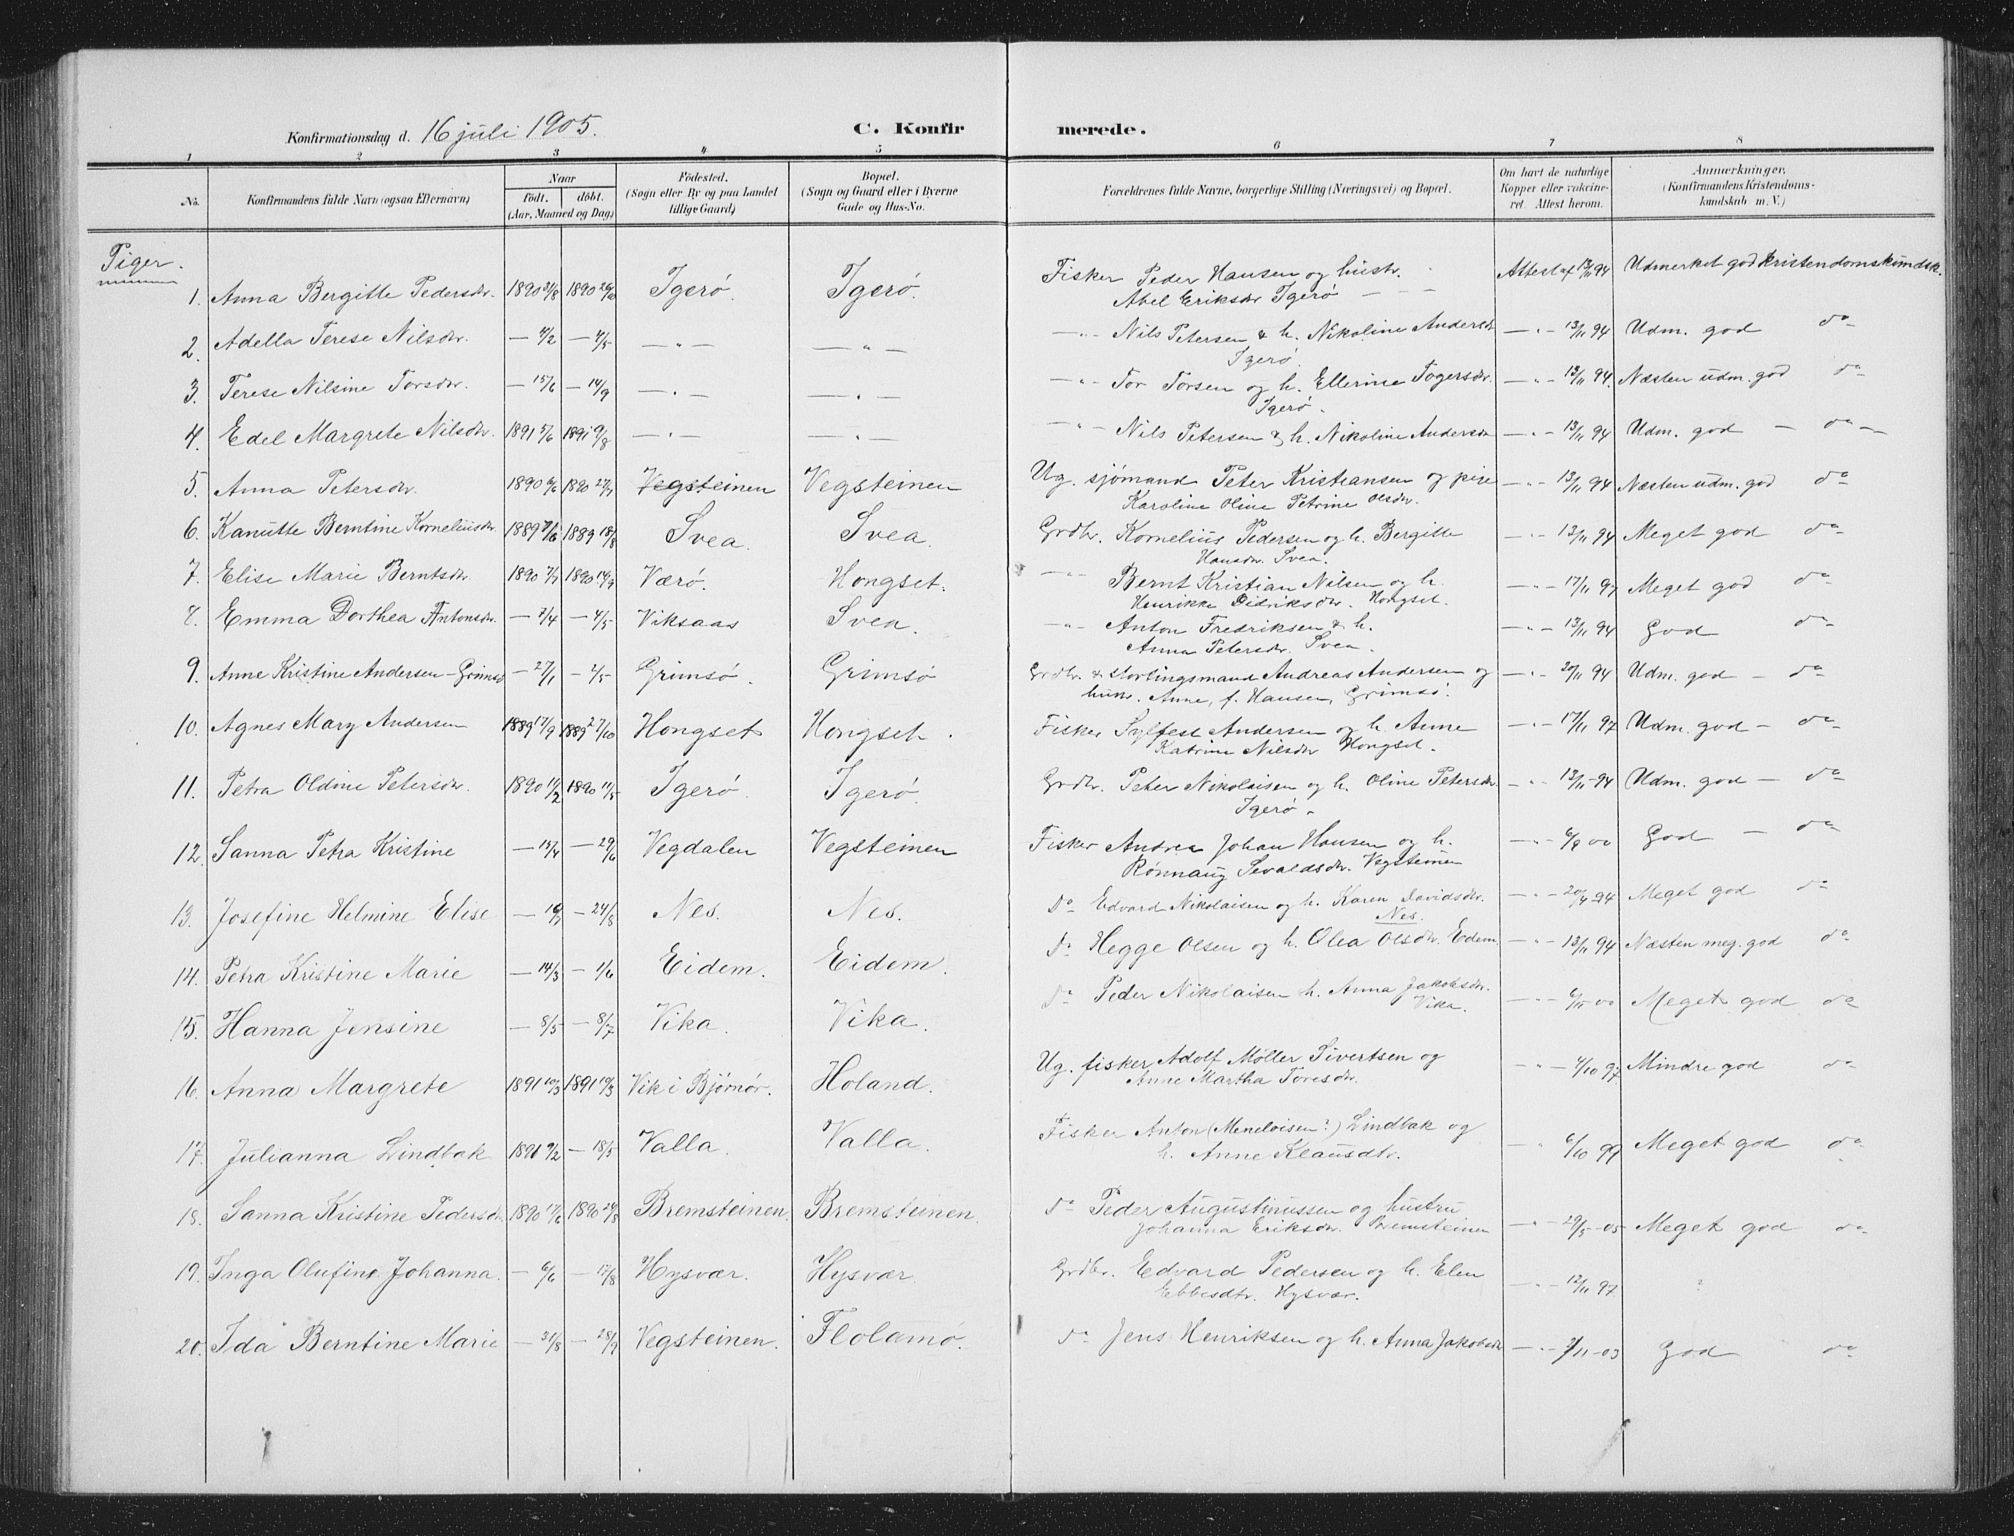 Konfirmationsdag d. 16 juli 1905.
C. Konfirmerede.
1 2 3 4 5 6 7 8
No. Konfirmandens fulde Navn (ogsaa Efternavn) Naar født. døbt. (Aar, Maaned og Dag) Fødested. (Sogn eller By og paa Landet tillige Gaard) Bopæl. (Sogn og Gaard eller i Byerne Gade og Hus-No. Forældrenes fulde Navne, borgerlige Stilling (Næringsvei) og Bopæl. Om havt de naturlige Kopper eller vakcineret. Attest herom. Anmerkninger. (Konfirmandens Kristendomskundskab m. V.)
Piger.
1. Anna Bergitte Pedersdr. 1890 31/8 1890 26/10 Igerø. Igerø. Fisker Peder Hansen og hustr. Attest af 13/11 94 Udmerket god kristendomskundsk.
Abel Eriksdr Igerø — — —
2. Adella Terese Nilsdr. — 4/2 — 4/5 — " — — " — — " — Nils Petersen & h. Nikoline Andersdr — " — 13/11 94 Udm. god do
Igerø
3. Terese Nilsine Torsdr. — 15/6 — 14/9 — " — — " — — " — Tor Torsen og h. Ellerine Togersdr. — " — 13/11 94. Næsten udm. god do
Igerø.
4. Edel Margrete Nilsdr. 1891 5/6 1891 9/8 — " — — " — — " — Nils Petersen & h. Nikoline Andersdr — " — 13/11 94 Udm. god — do —
5. Anna Petersdr. 1890 6/6 1890 27/7 Vegsteinen Vegsteinen Ug. sjømand Peter Kristiansen og pige — " — 13/11 94 Næsten udm. god do
Karoline Oline Petrine Olsdr.
6. Kanutte Berntine Kornelius dr. 1889 7/6 1889 18/8 Svea. Svea. Grdbr. Kornelius Pedersen og h. Bergitte — " — 13/11 94 Meget god do
Hansdr. Svea.
7. Elise Marie Berntsdr. 1890 7/7 1890 14/9 Værø. Hongset. — " — Bernt Kristian Nilsen og h. — " — 17/11 97 Meget god do
Henrikke Didriksdr. Hongset.
8. Emma Dorthea Antonsdr. — 7/4 — 4/5 Viksaas Svea. — " — Anton Fredriksen & h. — " — 13/11 94 God do
Anna Petersdr. Svea.
9. Anne Kristine Andersen-Grimsø — 27/1 — 2/5 Grimsø. Grimsø Grdbr. & stortingsmand Andreas Andersen og — " — 20/11 94 Udm. god — do
hustr. Anne, f. Hansen, Grimsø.
10. Agnes Mary Andersen 1889 17/9 1889 27/10 Hongset Hongset. Fisker Sylfest Andersen og h. Anne — " — 17/11 97 Udm. god — do
Katrine Nilsdr Hongset.
11. Petra Oldine Petersdr. 1890 11/2 1890 11/5 Igerø. Igerø. Grdbr. Peter Nikolaisen og h. Oline Petersdr. — " — 13/11 94 Udm. god — do
Igerø.
12. Sanna Petra Kristine — 13/4 — 29/6 Vegdalen Vegsteinen Fisker Andrea Johan Hansen og h. — " — 6/9 00 God — do
Rønnaug Sevaldsdr. Vegsteinen
13. Josefine Helmine Elise — 16/7 — 24/8 Nes. Nes. do Edvard Nikolaisen og h. Karen Davidsdr. — " — 20/4 94 Meget god do
Nes.
14. Petra Kristine Marie — 14/3 — 1/6 Eidem. Eidem. do Hegge Olsen og h. Olea Olsdr. Edem. — " — 13/11 94 Næsten meg. god do
15. Hanna Jensine — 8/5 — 8/7 Vika. Vika. do Peder Nikolaisen h. Anna Jakobsdr. — " — 00 Meget god do
Vika.
16. Anna Margrete 1891 10/3 1891 19/3 Vik i Bjørnør. Holand. Ug. fisker Adolf Møller Sivertsen og — " — 4/10 97 Mindre god do
Anne Martha Toresdr.
17. Julianna Lindbak 1891 9/2 — 18/5 Valla. Valla. Fisker Anton (Meneloisen?) Lindbak og — " — 6/10 99 Meget god do
h. Anne Klausdtr.
18. Sanna Kristine Pedersdr. 1890 17/6 1890 24/8 Bremsteinen. Bremsteinen. do Peder Augustinussen og hustru — " — 29/5-05 Meget god do
Johanna Eriksdr. Bremsteinen
19. Inga Olufine Johanna. — 6/6 — 17/8 Hysvær. Hysvær. Grdbr. Edvard Pedersen og h. Elen — " — 12/11 97. "
Ebbesdtr. Hysvær.
20. Ida Berntine Marie — 31/8 — 28/9 Vegsteinen. Flolamo. do Jens Henriksen og h. Anna Jakobsdr — " — 7/11-03 God do